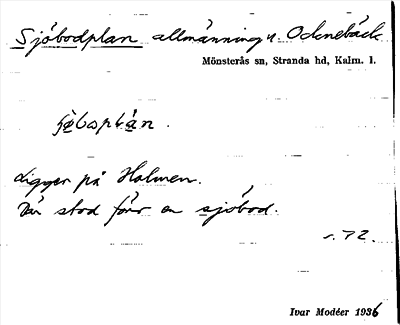 Sjöbodplan allmänning u. Ödnebäck
Mönsterås sn, Stranda hd, Kalm. l.
Ligger på Holmen.
Där stod förr en sjöbod.
s. 72.
Ivar Modéer 1936